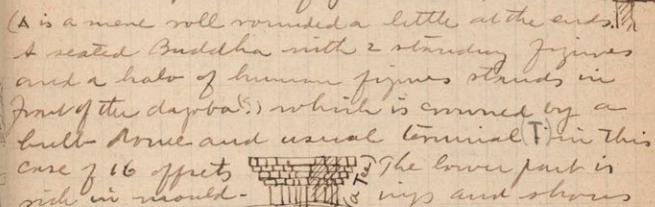 (A is a mere roll rounded a little at the ends.
A seated Buddha with 2 standing figures
and a halo of human figures stands in
front of the dagoba(?) which is crowned by a
bulb dome and usual terminal (T) in this
case of 16 offsets (a Tee) The lower part is
rich in mould- ings and shows